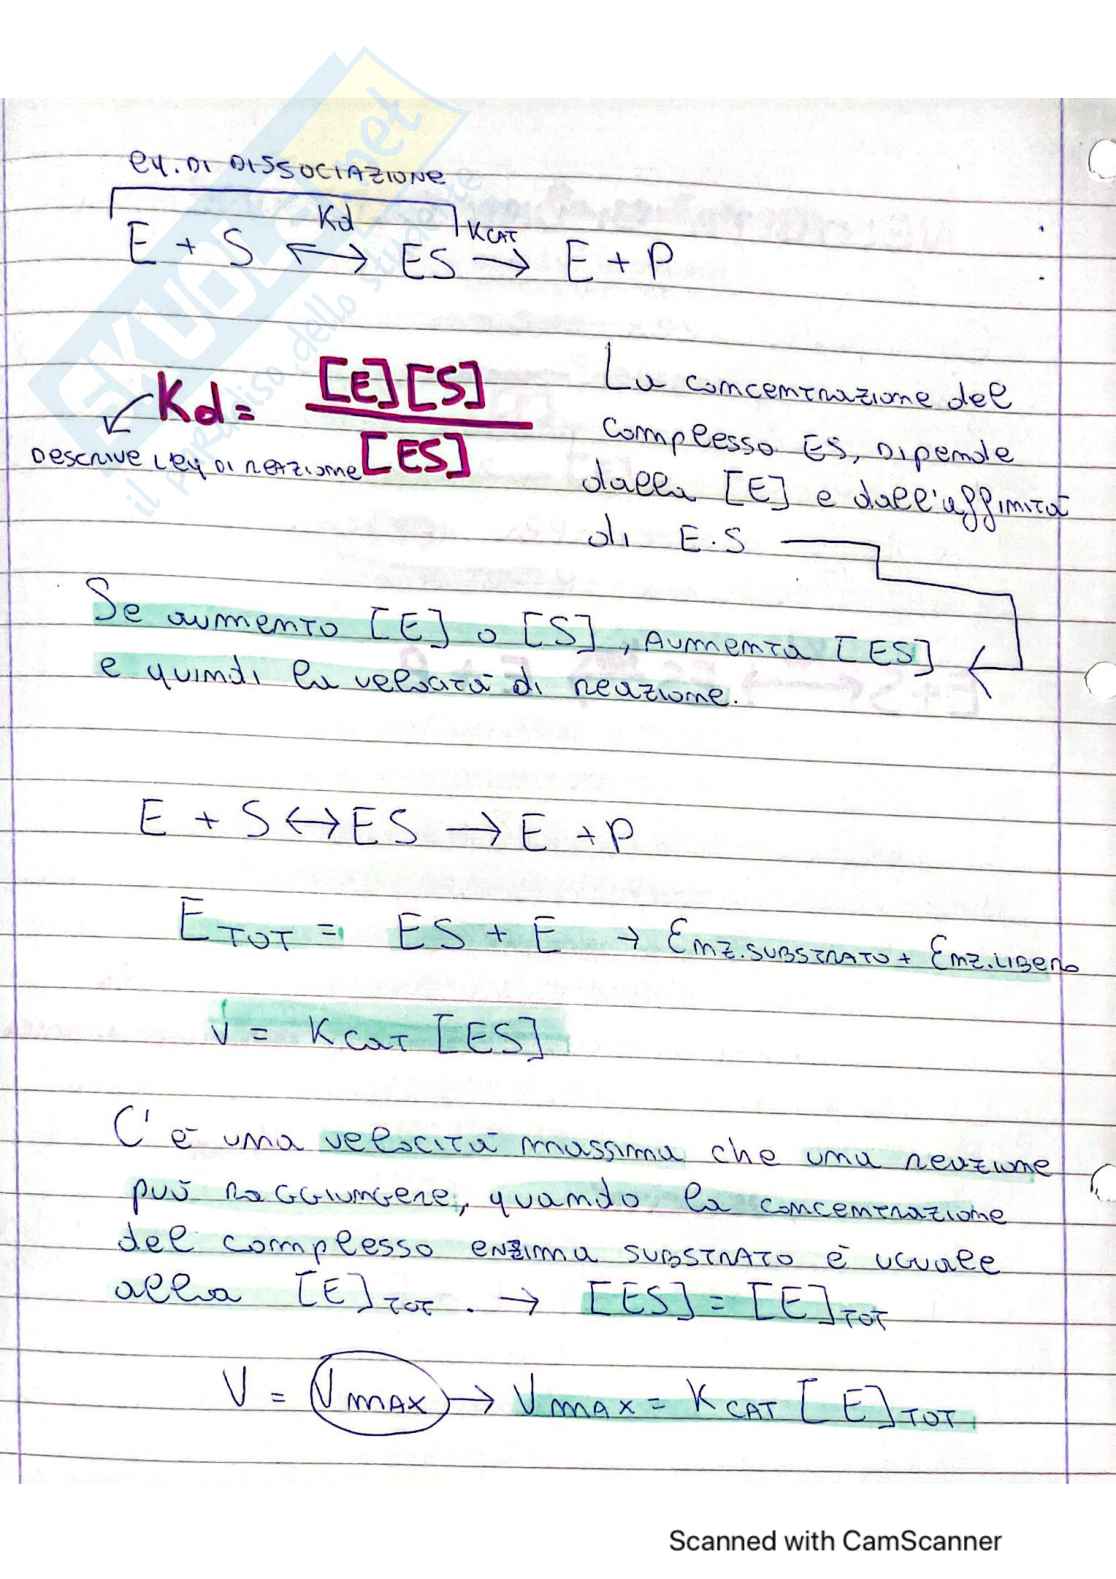 eq. DI DISSOCIAZIONE
Kd KCAT
E + S ⟷ ES → E + P
Kd = [E][S] / [ES]
DESCRIVE L'eq DI REAZIONE
La concentrazione del
complesso ES, DIPENDE
dalla [E] e dall'affinità
di E.S
Se aumento [E] o [S], AUMENTA [ES]
e quindi la velocità di reazione.
E + S ⟷ ES → E + P
E TOT = ES + E → Enz. SUBSTRATO + Enz. LIBERO
V = K CAT [ES]
C'è una velocità massima che una reazione
può RAGGIUNGERE, quando la concentrazione
del complesso enzima SUBSTRATO è uguale
alla [E] TOT. → [ES] = [E] TOT
V = V MAX → V MAX = K CAT [E] TOT
SKUOLA.net
il paradiso dello studente
Scanned with CamScanner